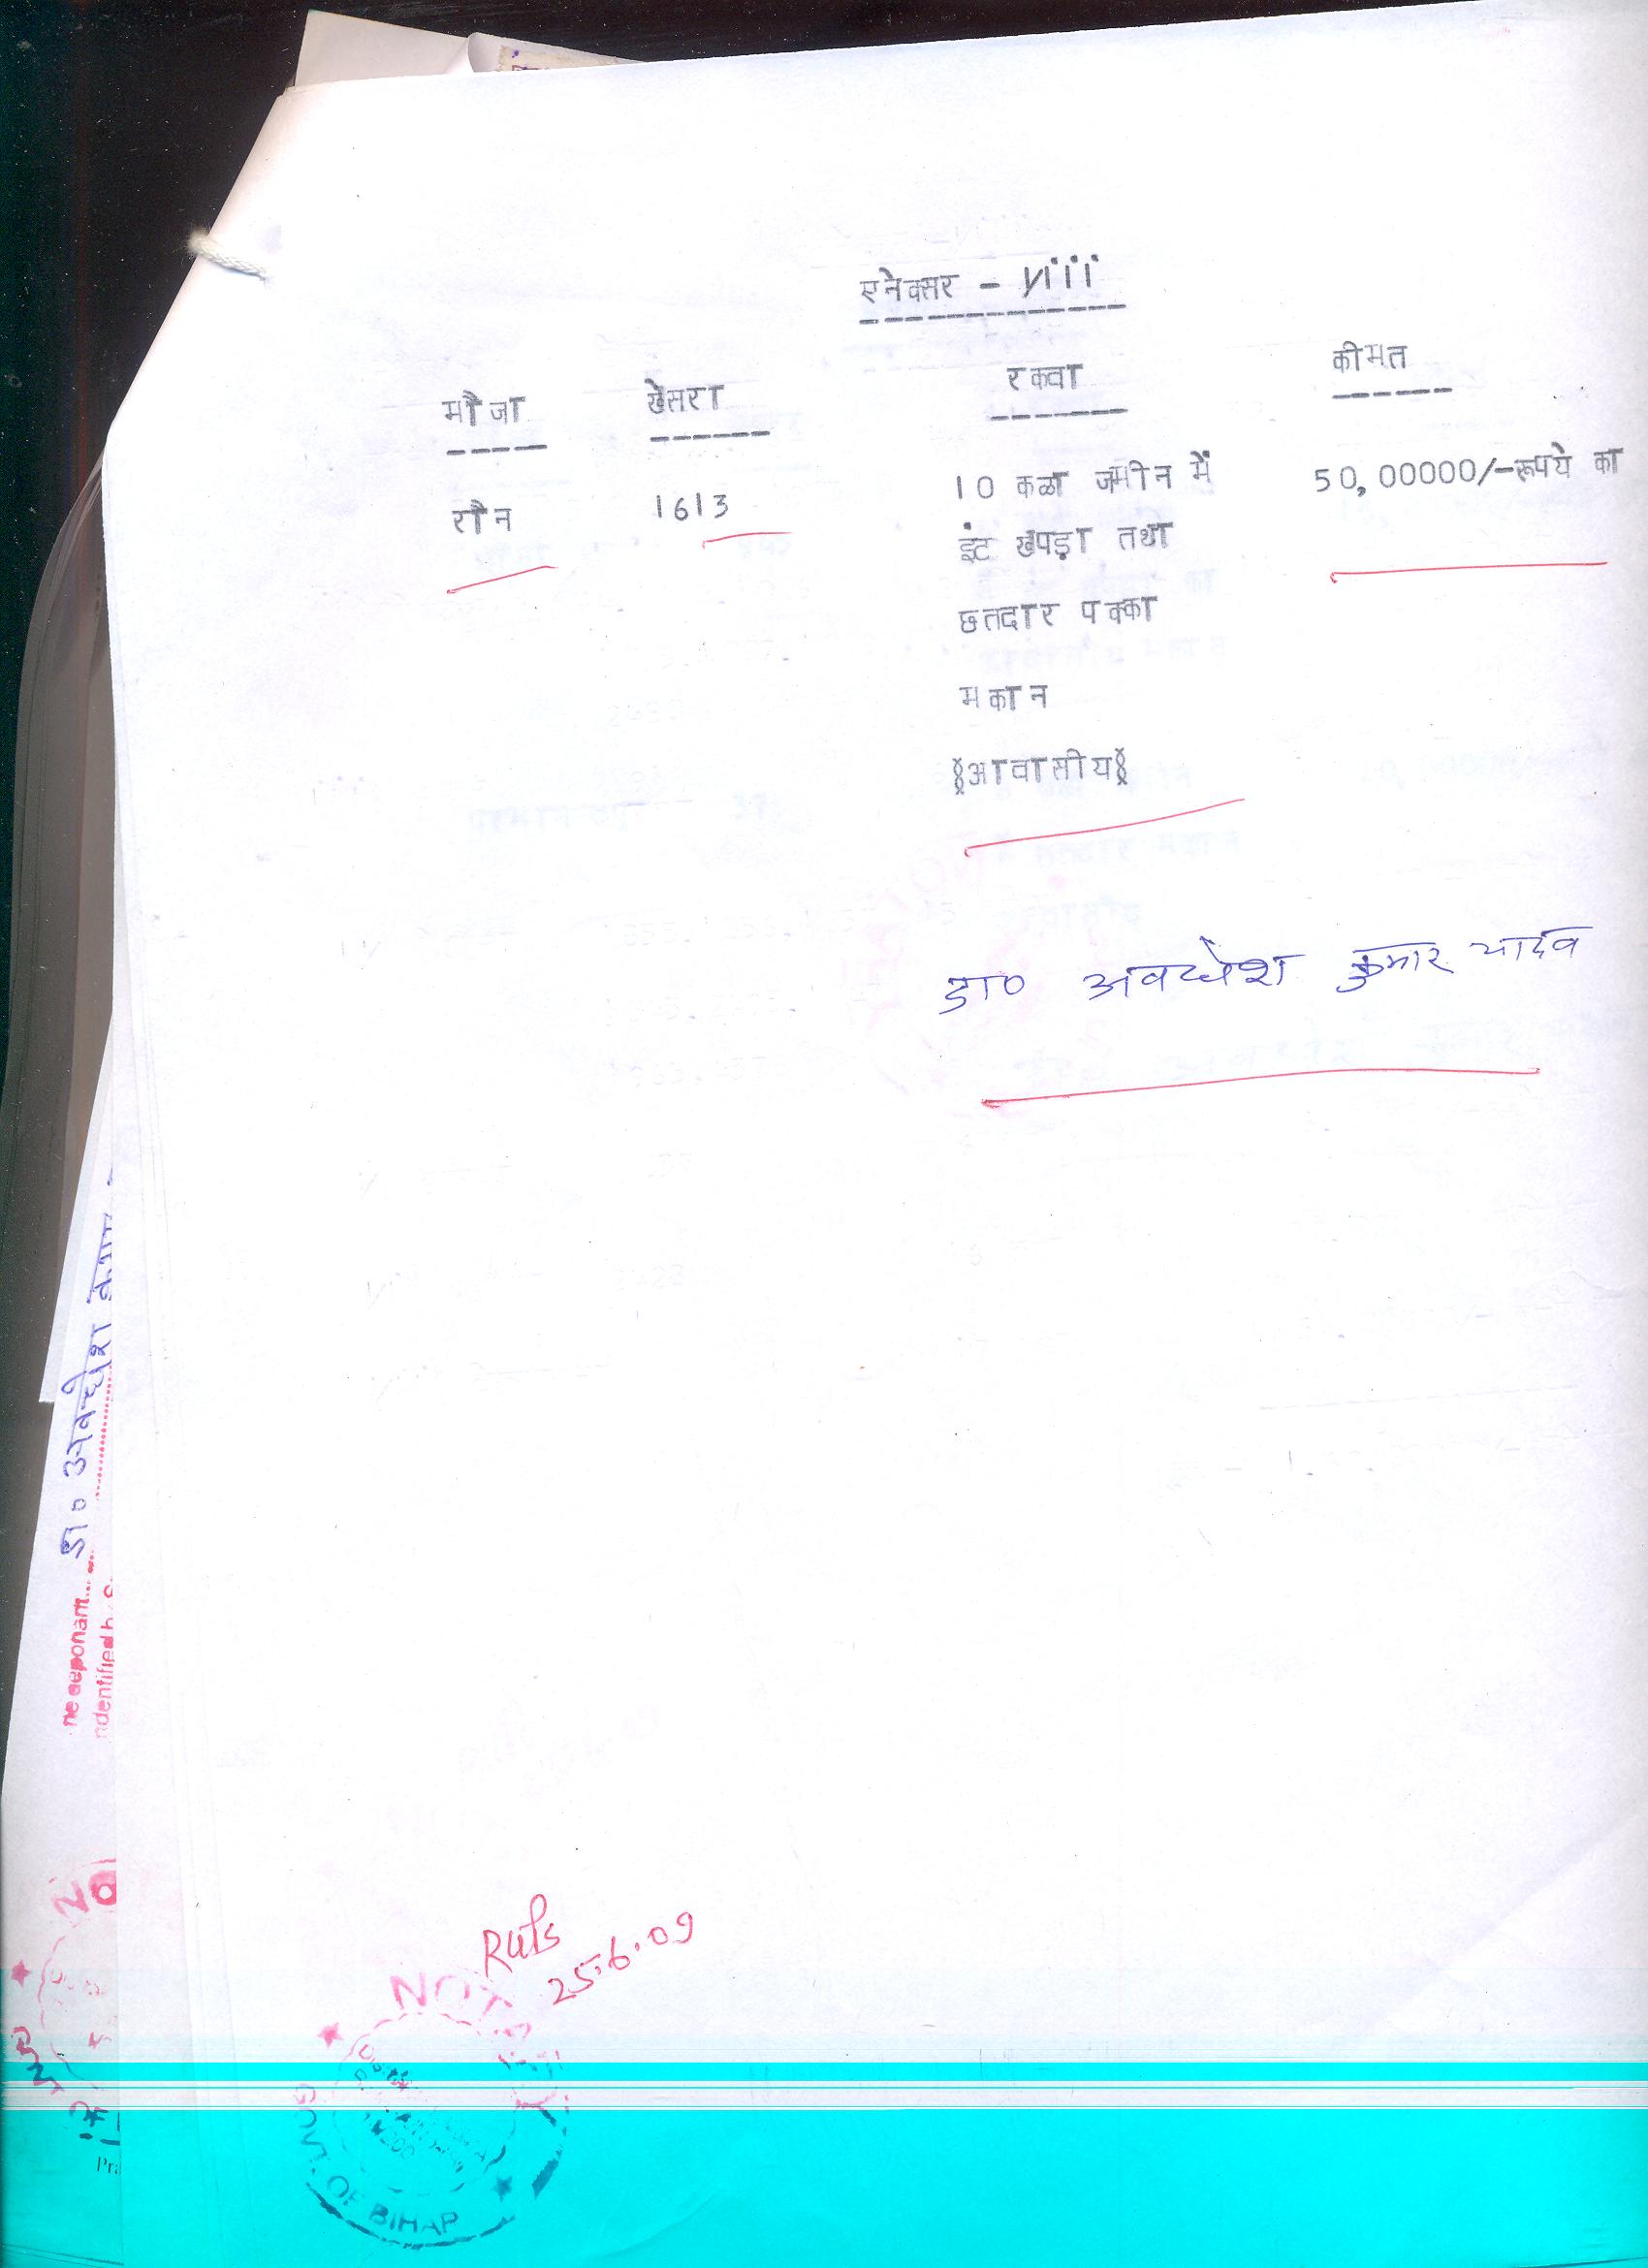 एनेक्सर - viii
मौजा खेसरा रकवा कीमत
रौन 1613 10 कठा जमीन में 50,00000/-रूपये का
इंट खपड़ा तथा
छतदार पक्का
मकान
(आवासीय)
डा० अवधेश कुमार यादव
डा० अवधेश कुमार
ndentified b
25.6.09
NOTARY
GOVT. OF BIHAR